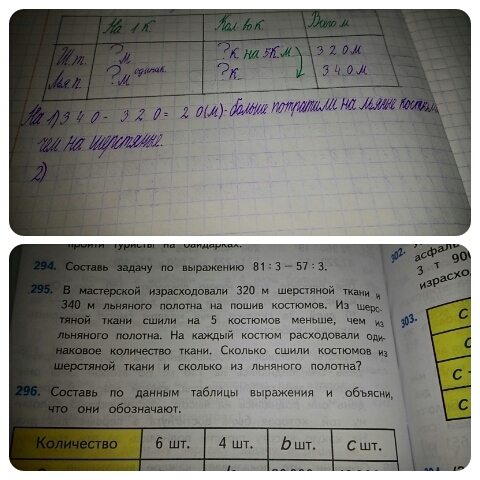 На 1 К. Кол во к. Всего м
Шт. ? м ? к на 5К м 320м
Льн п. ? м одинак. ? к. 340м
1) 340 - 320 = 20(м)-больше потратили на льяные костюм
чем на шерстяные.
2)
пройти туристы на байдарках.
294. Составь задачу по выражению 81 : 3 – 57 : 3.
295. В мастерской израсходовали 320 м шерстяной ткани и
340 м льняного полотна на пошив костюмов. Из шерс-
тяной ткани сшили на 5 костюмов меньше, чем из
льняного полотна. На каждый костюм расходовали оди-
наковое количество ткани. Сколько сшили костюмов из
шерстяной ткани и сколько из льняного полотна?
296. Составь по данным таблицы выражения и объясни,
что они обозначают.
Количество 6 шт. 4 шт. b шт. с шт.
302.
асфаль
3 т 90
израсход
303.
С
С
С
С